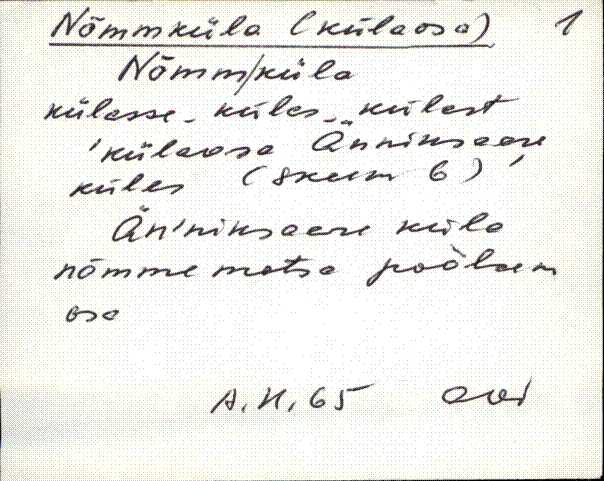 Nõmmküla (külaosa) 1
Nõmm/küla
külasse, küles, külast
'külaosa Änniksaare
küles (skeem 6)'
Än'niksaare küla
nõmme metsa poolsem
osa
A.K. 65